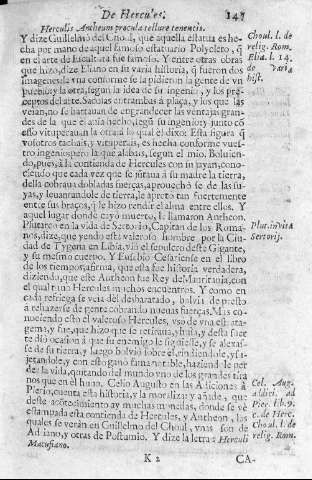 De Hercules. 147
Herculis Antheum procul a tellure tenentis.
Y dize Guillelmo del Choul, que aquella estatua es he-
cha por mano de aquel famoso estatuario Polycleto, q̃
en el arte de Escultura fue famoso. Y entre otras obras
que hizo, dize Eliano en su varia historia, q̃ fueron dos
imagenes: la vna conforme se la pidieron la gente de vn
pueblo; y la otra, segun la idea de su ingenio, y los pre-
ceptos del arte. Sacolas entrambas à plaça, y los que las
veian, no se hartauan de engrandecer las ventajas gran-
des de la que el auia hecho, segũ su ingenio; y junto cõ
esso vituperauan la otra: à lo qual el dixo: Esta figura q̃
vosotros tachais, y vituperais, es hecha conforme vues-
tro ingenio; pero la que alabais, segun el mio. Boluien-
do, pues, à la contienda de Hercules con su jayan, cono-
ciendo que cada vez que se jũtaua à su madre la tierra,
della cobraua dobladas fuerças, aprouechò se de las su-
yas, y leuantandole de tierra, le apretò tan fuertemente
entre sus braços, q̃ le hizo rendir el alma entre ellos. Y
aquel lugar donde cayò muerto, le llamaron Antheon.
Plutarco en la vida de Sertorio, Capitan de los Roma-
nos, dize, que yendo este valeroso hombre por la Ciu-
dad de Tygena en Libia, viò el sepulcro deste Gigante,
y su mesmo cuerpo. Y Eusebio Cesariense en el libro
de los tiempos, afirma, que esta fue historia verdadera,
diziendo, que este Antheon fue Rey de Mauritania, con
el qual tuuo Hercules muchos encuentros. Y como en
cada refriega se veia desbaratado, boluia de presto
à rehazerse de gente cobrando nueuas fuerças. Mas co-
nociendo esto el valeroso Hercules, vsò de vna estrata-
gema, y fue, que hizo que se retiraua, y huia, y desta suer-
te dio ocasion à que su enemigo le siguiesse, y se alexas-
se de su tierra, y luego boluiò sobre el, rindiendole, y su-
jetandole, y con esto ganò fama notable, haziendole per
der la vida, quitando del mundo vno de los grandes tira
nos que en el huuo. Celio Augusto en las Adiciones à
Pierio, cuenta esta historia, y la moraliza, y añade, que
deste acontecimiento ay muchas monedas, donde se vè
estampada esta contienda de Hercules, y Antheon, las
quales se verán en Guillelmo del Choul, vnas son de
Adriano, y otras de Postumio. Y dize la letra: Herculi
Macusiano.
K 2 CA-
Choul. l. de
relig. Rom.
Elia. l. 14.
de varia
hist.
Plut. in vita
Sertorij.
Cel. Aug.
addict. ad
Pier. lib. 9.
c. de Herc.
Choul. l. de
relig. Rom.